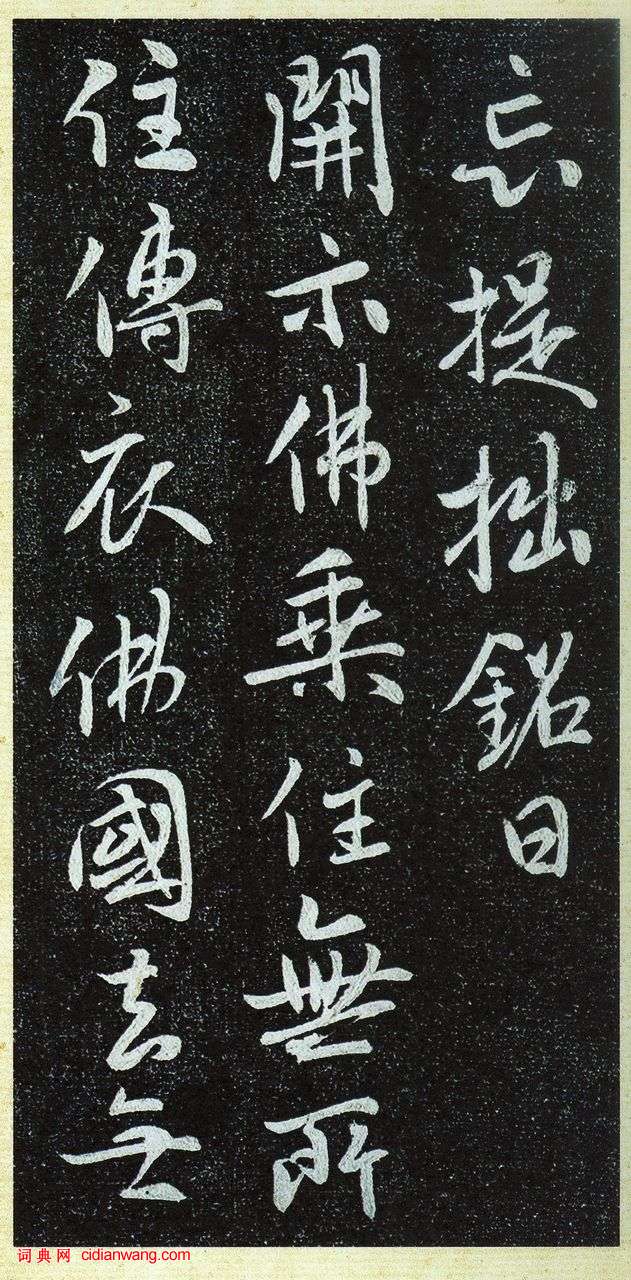 忘提拙銘曰
開示佛乘住無所
住傳衣佛國去無
词典网 cidianwang.com